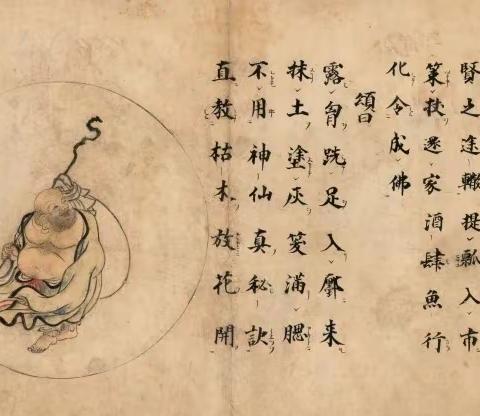 賢之途轍提瓢入市
策杖還家酒肆魚行
化令成佛
頌曰
露胷跣足入鄽来
抹土塗灰笑滿腮
不用神仙真秘訣
直教枯木放花開